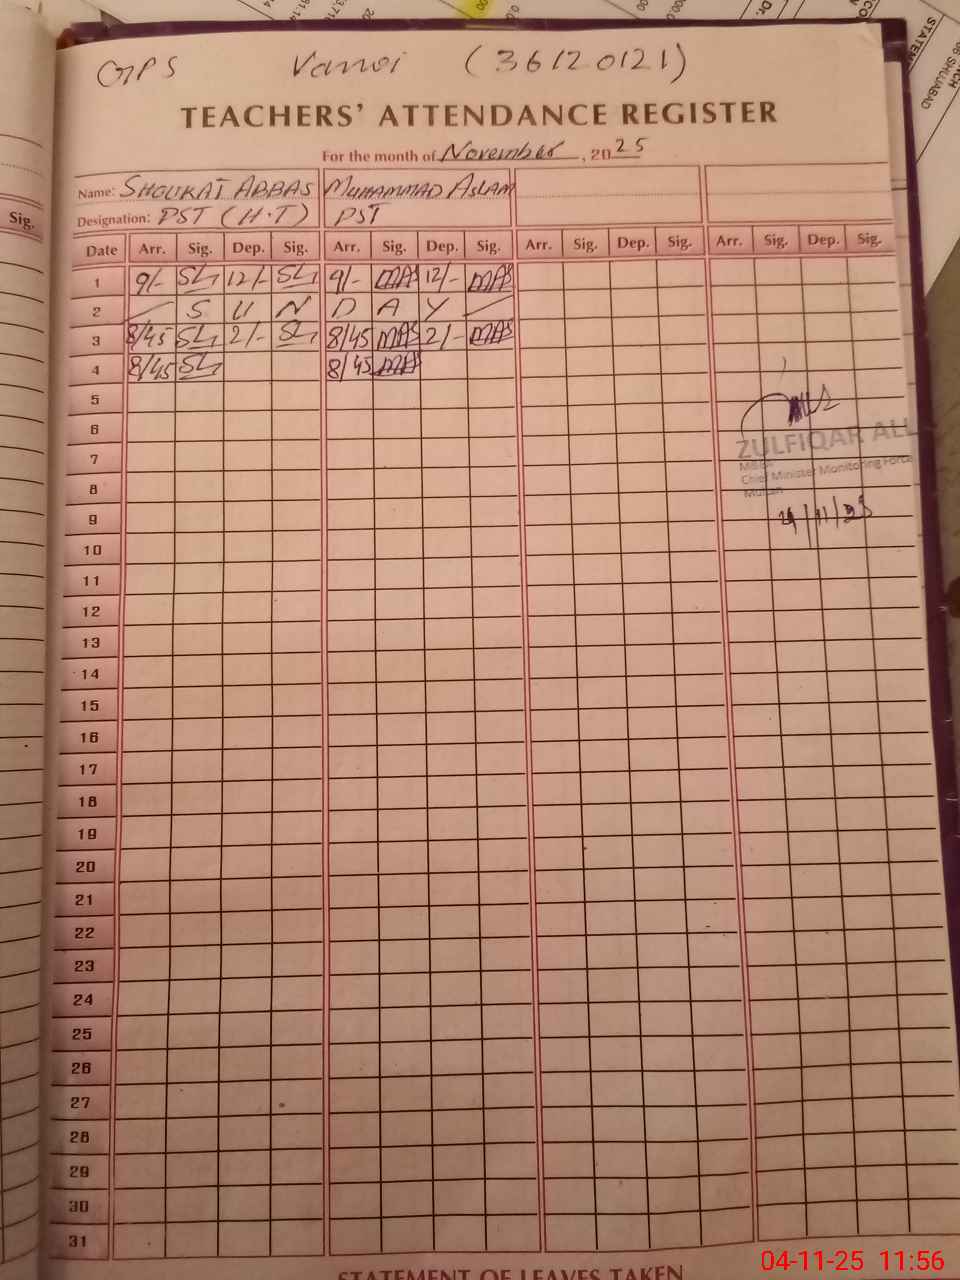 GPS Vanoi (36120121)
TEACHERS' ATTENDANCE REGISTER
For the month of November, 2025
Name: SHOUKAT ABBAS MUHAMMAD ASLAM
Designation: PST (H.T) PST
Sig.
Date Arr. Sig. Dep. Sig. Arr. Sig. Dep. Sig. Arr. Sig. Dep. Sig. Arr. Sig. Dep. Sig.
1 9/- 12/- 9/- MAS 12/- MAS
2 S U N D A Y
3 8/45 2/- 8/45 MAS 2/- MAS
4 8/45 8/45 MAS
5
6
ZULFIQAR ALI
7
Chief Minister Monitoring Force
8
Multan
9
10
11
12
13
14
15
16
17
18
19
20
21
22
23
24
25
26
27
28
29
30
31
STATEMENT OF LEAVES TAKEN
04-11-25 11:56